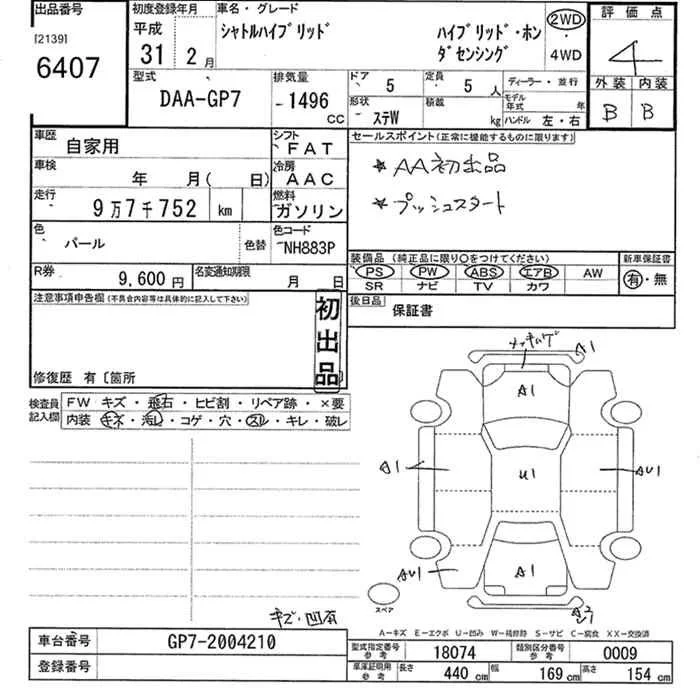 出品番号
[2139]
6407
初度登録年月
平成
31年 2月
車名・グレード
シャトルハイブリッド
ハイブリッド・ホン
ダセンシング
2WD
・
4WD
評価点
4
外装 内装
B B
型式
DAA-GP7
排気量
1496
CC
ドア 5
定員 5人
形状 ステW
積載 kg
ディーラー・並行
モデル年式 年
ハンドル 左・右
車歴 自家用
シフト FAT
車検 年 月( 日)
冷房 AAC
走行 9万7千752 km
燃料 ガソリン
色 パール 色替
色コード NH883P
R券 9,600円
名変通知期限 月 日
セールスポイント(正常に機能するものに限ります)
★AA初出品
★プッシュスタート
装備品(純正品に限り○をつけてください)
PS PW ABS エアB AW
SR ナビ TV カワ
新車保証書
有・無
後日品
保証書
注意事項申告欄(不具合内容等は具体的に記入して下さい)
初出品
修復歴 有〔箇所 〕
検査員記入欄
FW キズ・飛石・ヒビ割・リペア跡・×要
内装 キズ・汚レ・コゲ・穴・スレ・キレ・破レ
A1
A1
A1
U1
AU1
AU1
A1
スペア
キズ・凹有
A2
A-キズ E-エクボ U-凹み W-補修跡 S-サビ C-腐食 XX-交換済
車台番号 GP7-2004210
登録番号
型式指定番号 参考 18074
類別区分番号 参考 0009
車庫証明用 参考
長さ 440cm
幅 169cm
高さ 154cm